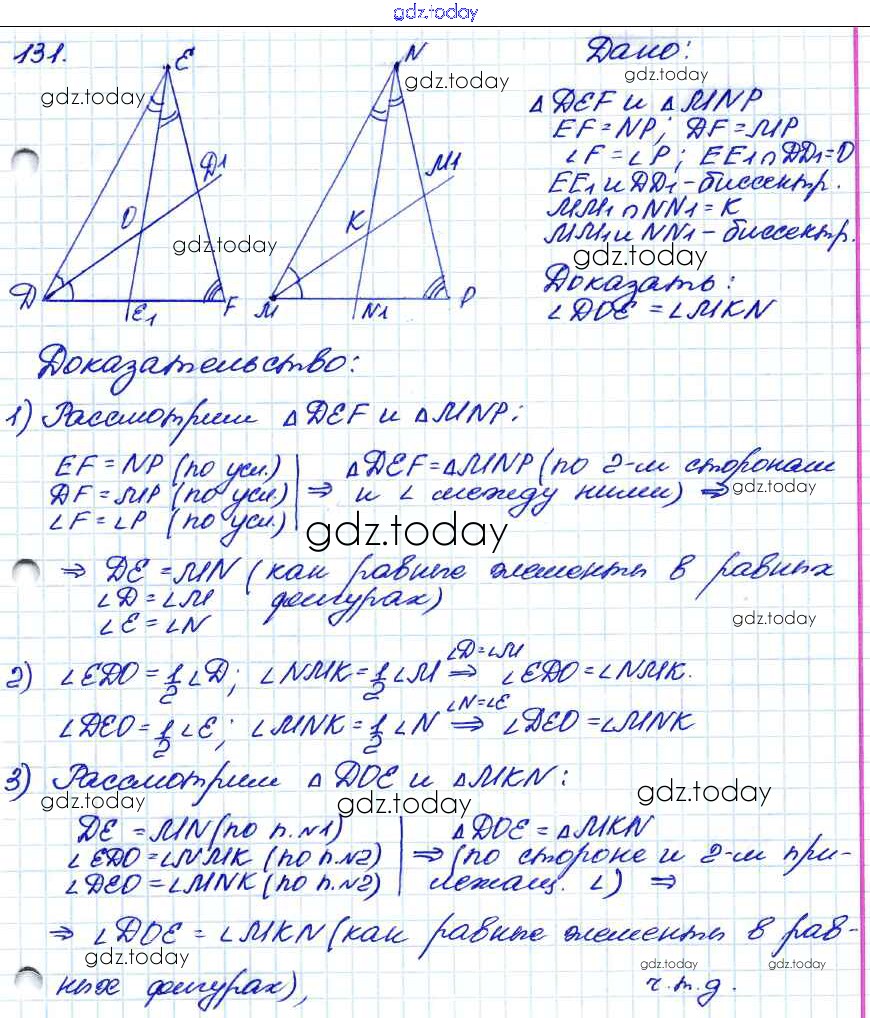 gdz.today
131.
E
N
Дано:
gdz.today
gdz.today
gdz.today
△DEF и △MNP
EF = NP; DF = MP
∠F = ∠P; EE1 ∩ DD1 = O
D1
M1
EE1 и DD1 - биссектр.
O
K
MM1 ∩ NN1 = K
gdz.today
MM1 и NN1 - биссектр.
gdz.today
D
E1
F
M
N1
P
Доказать:
∠DOE = ∠MKN
Доказательство:
1) Рассмотрим △DEF и △MNP:
EF = NP (по усл.)
DF = MP (по усл.)
∠F = ∠P (по усл.)
⇒ △DEF = △MNP (по 2-м сторонам
и ∠ между ними) ⇒
gdz.today
gdz.today
⇒ DE = MN (как равные элементы в равных
∠D = ∠M фигурах)
∠E = ∠N
gdz.today
2) ∠EDO = 1/2 ∠D; ∠NMK = 1/2 ∠M ∠D=∠M ⇒ ∠EDO = ∠NMK.
∠DEO = 1/2 ∠E; ∠MNK = 1/2 ∠N ∠N=∠E ⇒ ∠DEO = ∠MNK
3) Рассмотрим △DOE и △MKN:
gdz.today
gdz.today
gdz.today
DE = MN (по п.№1)
∠EDO = ∠NMK (по п.№2)
∠DEO = ∠MNK (по п.№2)
△DOE = △MKN
⇒ (по стороне и 2-м при-
лежащ. ∠) ⇒
⇒ ∠DOE = ∠MKN (как равные элементы в рав-
gdz.today
gdz.today
gdz.today
ных фигурах),
ч.т.д.